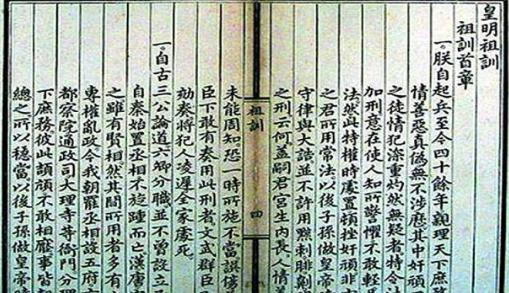 皇明祖訓
祖訓首章
一。朕自起兵至今四十餘年。親理天下庶
情善惡真偽無不涉歷其中奸頑
之徒情犯深重灼然無疑者特令
加刑意在使人知所警懼不敢輕
法然此特權時處置頓挫奸頑非
之君所用常法以後子孫做皇帝
守律與大誥並不許用黥刺剕劓
之刑云何蓋嗣君宮生內長人情善
祖訓
四
未能周知恐一時所施不當誤傷
臣下敢有奏用此刑者文武群臣
劾奏將犯人凌遲全家處死
一。自古三公論道六卿分職並不曾設立
自秦始置丞相不旋踵而亡漢唐
之雖有賢相然其間所用者多有
專權亂政今我朝罷丞相設五府
都察院通政司大理寺等衙門分理
下庶務彼此頡頏不敢相壓事皆
總之所以穩當以後子孫做皇帝時